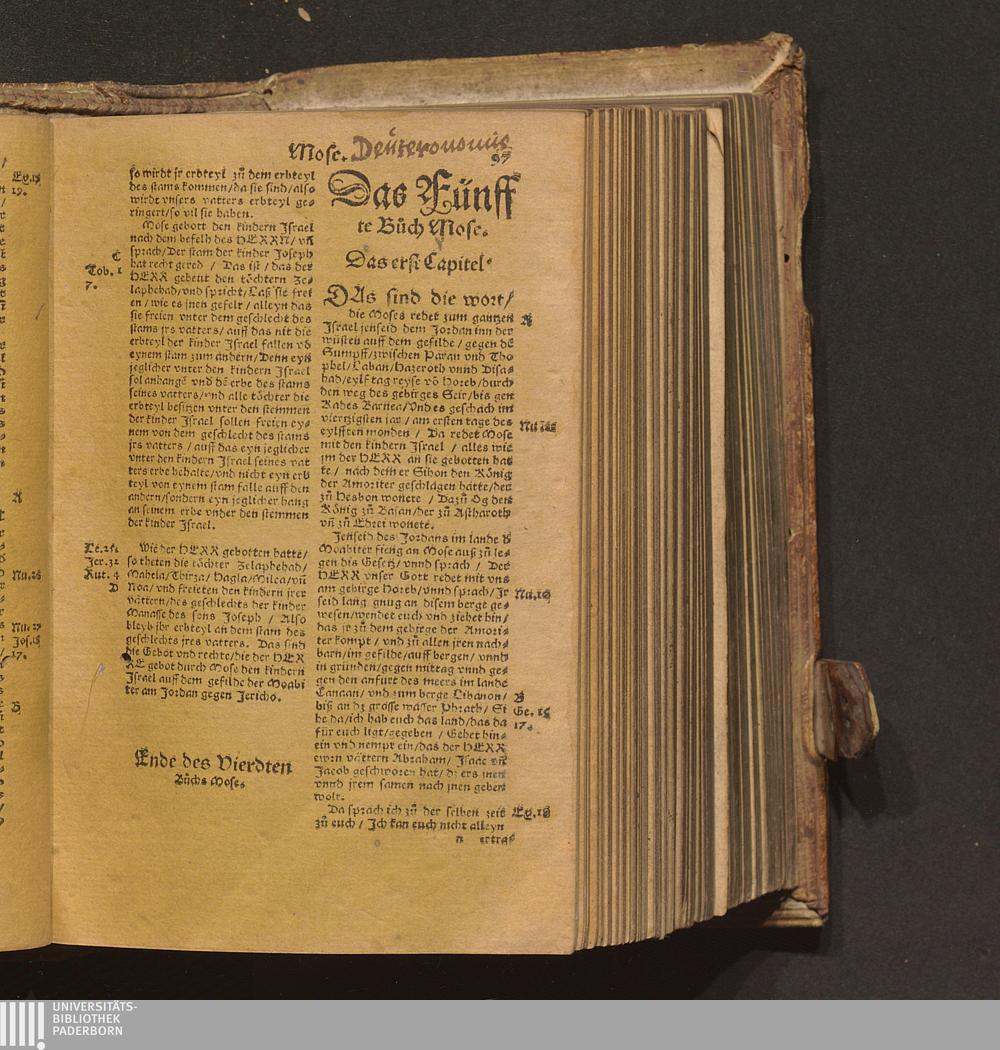 Mose. Deuteronomie
97
so wirdt jr erbteyl zů dem erbteyl
des stams kommen/da sie sind/also
wirdt vnsers vatters erbteyl ge-
ringert/so vil sie haben.
Mose gebott den kindern Israel
nach dem befelh des HERRN/ vñ
sprach/Der stam der kinder Joseph
hat recht gered / Das ist / das der
HERR gebeut den töchtern Ze-
laphehad/vnd spricht/Laß sie frei
en/wie es jnen gefelt/alleyn das
sie freien vnter dem geschlecht des
stams jrs vatters/auff das nit die
erbteyl der kinder Israel fallen võ
eynem stam zum andern/Denn eyn
jeglicher vnter den kindern Israel
sol anhangẽ vnd dẽ erbe des stams
seines vatters/vnd alle töchter die
erbteyl besitzen vnter den stemmen
der kinder Israel sollen freien ey-
nem von dem geschlecht des stams
jrs vatters / auff das eyn jeglicher
vnter den kindern Israel seines vat
ters erbe behalte/vnd nicht eyn erb
teyl von eynem stam falle auff den
andern/sondern eyn jeglicher hang
an seinem erbe vnder den stemmen
der kinder Israel.
Wie der HERR gebotten hatte/
so theten die töchter Zelaphehad/
Mahela/Thirza/Hagla/Milca/vñ
Noa/vnd freieten den kindern jrer
vättern/des geschlechts der kinder
Manasse des sons Joseph / Also
bleyb jhr erbteyl an dem stam des
geschlechts jres vatters. Das sind
die Gebot vnd rechte/die der HER
RE gebot durch Mose den kindern
Israel auff dem gefilde der Moabi
ter am Jordan gegen Jericho.
Ende des Vierdten
Bůchs Mose.
C
Tob. 1
7.
Jer. 32
Rut. 4
D
Das Fünff
te Bůch Mose.
Das erst Capitel.
DAs sind die wort/
die Moses redet zum gantzen
Israel jenseid dem Jordan inn der
wüsten auff dem gefilde/gegen dẽ
Sumpff/zwischen Paran vnd Tho
phel/Laban/Hazeroth vnnd Disa-
hab/eylf tag reyse võ Horeb/durch
den weg des gebirges Seir/bis gen
Kades Barnea/Vnd es geschach im
viertzigsten jar / am ersten tage des
eylfften monden / Da redet Mose
mit den kindern Israel / alles wie
jm der HERR an sie gebotten hat
te / nach dem er Sihon den König
der Amoriter geschlagen hatte/der
zů Hesbon wonete / Dazů Og den
König zů Basan/der zů Astharoth
vñ zů Edrei wonete.
Jenseid des Jordans im lande d
Moabiter fieng an Mose auß zů le-
gen dis Gesetz/vnnd sprach / Der
HERR vnser Gott redet mit vns
am gebirge Horeb/vnnd sprach/Jr
seid lang gnug an disem berge ge-
wesen/wendet euch vnd ziehet hin/
das jr zů dem gebirge der Amori-
ter kompt / vnd zů allen jren nach-
barn/im gefilde/auff bergen/vnnd
in gründen/gegen mittag vnnd ge-
gen den anfurt des meers im lande
Canaan/vnd zum berge Libanon/
biß an dz grosse wasser Phrath/ Si
he da/ich hab euch das land/das da
für euch ligt/gegeben / Gehet hin-
ein vnd nempt ein/das der HERR
ewrn vättern Abraham/ Isaac vñ
Jacob geschworen hat/dz ers jnen
vnnd jrem samen nach jnen geben
wolt.
Da sprach ich zů der selben zeit
zů euch / Ich kan euch nicht alleyn
n ertra-
A
B
Ge. 15
17.
UNIVERSITÄTS-
BIBLIOTHEK
PADERBORN